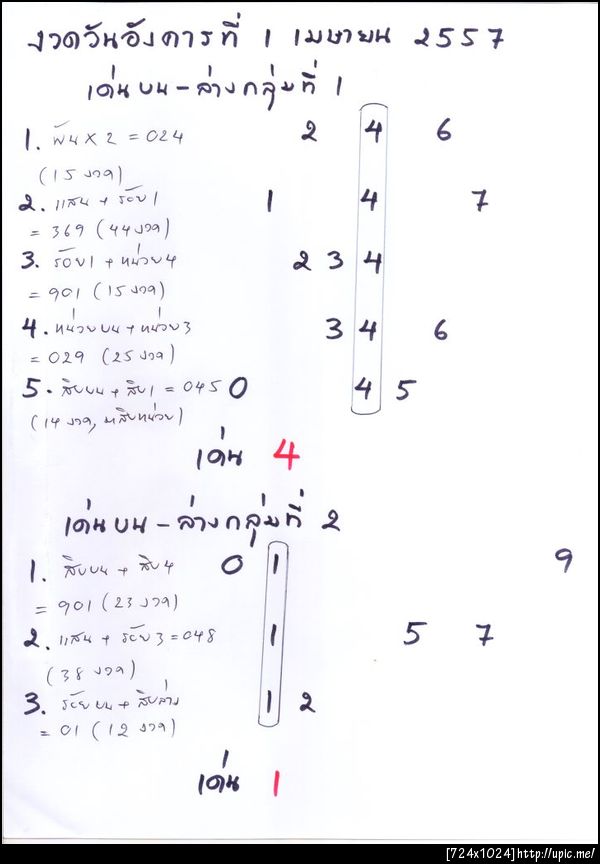 งวดวันอังคารที่ 1 เมษายน 2557
เด่นบน-ล่างกลุ่มที่ 1
1. พัน x 2 = 024 2 4 6
(15 งวด)
2. แสน + ร้อย 1 1 4 7
= 369 (44 งวด)
3. ร้อย 1 + หน่วย 4 2 3 4
= 901 (15 งวด)
4. หน่วยบน + หน่วย 3 3 4 6
= 029 (25 งวด)
5. สิบบน + สิบ 1 = 045 0 4 5
(14 งวด, สิบหน่วย)
เด่น 4
เด่นบน-ล่างกลุ่มที่ 2
1. สิบบน + สิบ 4 0 1 9
= 901 (23 งวด)
2. แสน + ร้อย 3 = 048 1 5 7
(38 งวด)
3. ร้อยบน + สิบล่าง 1 2
= 01 (12 งวด)
เด่น 1
[724x1024]http://upic.me/